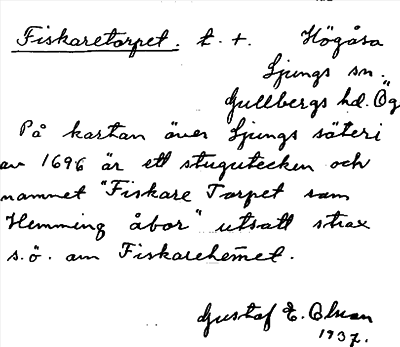 Fiskaretorpet. t. +. Högåsa
Ljungs sn.
Gullbergs hd. Ög
På kartan över Ljungs säteri
av 1696 är ett stugutecken och
namnet "Fiskare Torpet som
Hemming åbor" utsatt strax
s.ö. om Fiskarehemet.
Gustaf E. Olsson
1937.